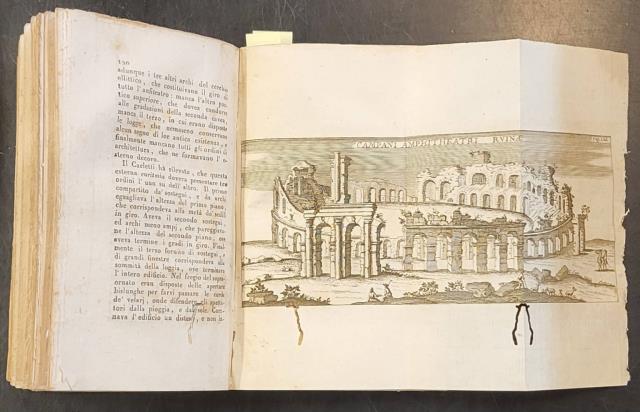 120
adunque i tre altri archi del cerchio
ellittico, che costituivano il giro di
tutto l'anfiteatro: manca l'altro por-
tico superiore, che dovea condurre
alle gradazioni della seconda cavea,
manca il terzo, in cui erano disposte
le logge, che nemmeno conservano
alcun segno di lor antica esistenza, e
finalmente mancano tutti gli ordini di
architettura, che ne formavano l'e-
sterno decoro.
Il Carletti hà rilevato, che questa
esterna euritmia doveva presentare tre
ordini l'uno su dell'altro. Il primo
compartito da' sostegni, e da archi
eguagliava l'altezza del primo piano,
che corrispondeva alla metà de' sedili
in giro. Aveva il secondo sostegni,
ed archi meno ampj, che pareggiar-
ne l'altezza del secondo piano, ove
aveva termine i gradi in giro. Final-
mente il terzo fornito di sostegni, e
di grandi finestre corrispondeva alla
sommità della loggia, ove terminava
l'intero edificio. Nel fregio del sopra-
ornato eran disposte delle aperture
bislunghe per farvi passare le corde
de' velarj, onde difendere gli spetta-
tori dalla pioggia, e dal sole. Coro-
nava l'edificio un distesa, e non in-
CAMPANI AMPHITHEATRI RVINÆ